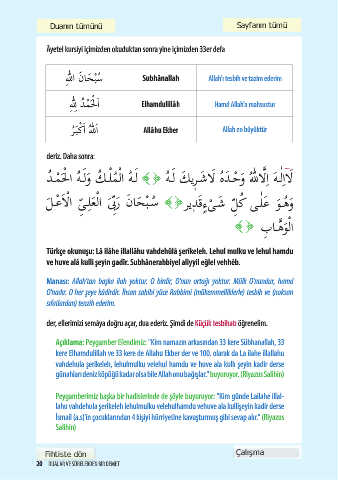 Duanın tümünü
Sayfanın tümü
Âyetel kursiyi içimizden okuduktan sonra yine içimizden 33er defa
سُبْحَانَ اللهِ
Subhânallah
Allah'ı tesbih ve tazim ederim
اَلْحَمْدُ لِلهِ
Elhamdulillâh
Hamd Allah'a mahsustur
اَللهُ اَكْبَرُ
Allâhu Ekber
Allah en büyüktür
deriz. Daha sonra:
لَآ اِلٰهَ اِلَّا اللهُ وَحْدَهُ لَاشَرِيكَ لَهُ ﴿﴾ لَهُ الْمُلْكُ وَلَهُ الْحَمْدُ
وَهُوَ عَلٰى كُلِّ شَيْءٍ قَدِيرٌ ﴿﴾ سُبْحَانَ رَبِّيَ الْعَلِيِّ الْاَعْلَ
الْوَهَّابِ ﴿﴾
Türkçe okunuşu: Lâ ilâhe illallâhu vahdehûlâ şerikeleh. Lehul mulku ve lehul hamdu
ve huve alâ kulli şeyin gadîr. Subhânerabbiyel aliyyil eğlel vehhêb.
Manası: Allah'tan başka ilah yoktur. O birdir, O'nun ortağı yoktur. Mülk O'nundur, hamd
O'nadır. O her şeye kâdirdir. İhsan sahibi yüce Rabbimi (mükemmelliklerle) tesbih ve (noksan
sıfatlardan) tenzih ederim.
der, ellerimizi semâya doğru açar, dua ederiz. Şimdi de Küçük tesbihatı öğrenelim.
Açıklama: Peygamber Efendimiz: "Kim namazın arkasından 33 kere Sübhanallah, 33
kere Elhamdulillah ve 33 kere de Allahu Ekber der ve 100, olarak da La ilahe illallahu
vahdehula şerikeleh, lehulmulku velehul hamdu ve huve ala kulli şeyin kadir derse
günahları deniz köpüğü kadar olsa bile Allah onu bağışlar." buyuruyor. (Riyazus Salihin)
Peygamberimiz başka bir hadislerinde de şöyle buyuruyor: "Kim günde Lailahe illal-
lahu vahdehula şerikeleh lehulmulku velehulhamdu vehuve ala kullişeyin kadir derse
İsmail (a.s)'in çocuklarından 4 kişiyi hürriyetine kavuşturmuş gibi sevap alır." (Riyazus
Salihin)
Fihtiste dön
Çalışma
20